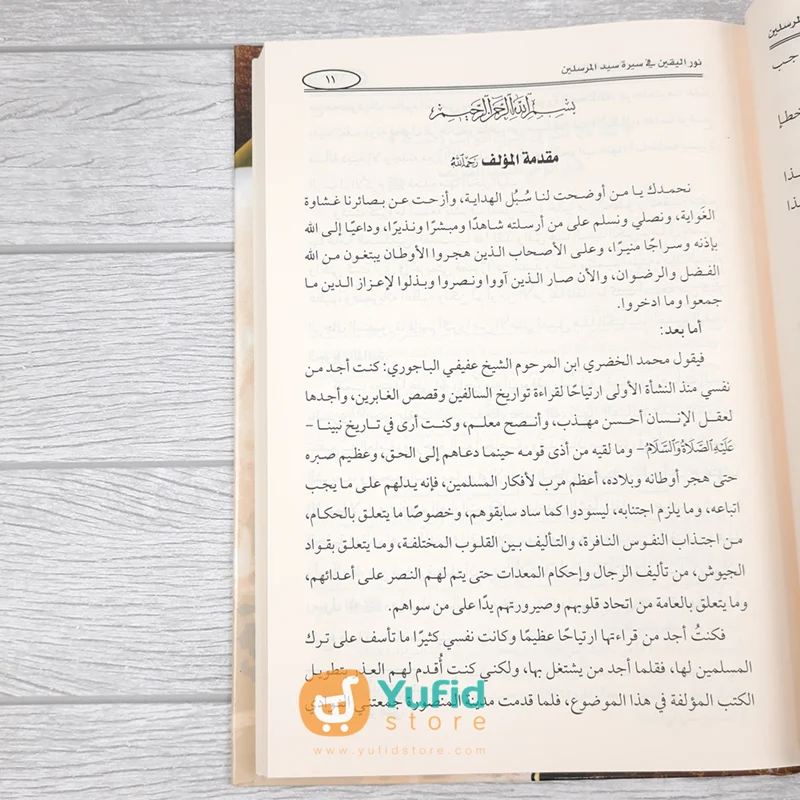 نور اليقين في سيرة سيد المرسلين
١١
بسم الله الرحمن الرحيم
مقدمة المؤلف رَحِمَهُ اللَّهُ
نحمدك يا من أوضحت لنا سُبُل الهداية، وأزحت عن بصائرنا غشاوة
الغَواية، ونصلي ونسلم على من أرسلته شاهدًا ومبشرًا ونذيرًا، وداعيًا إلى الله
بإذنه وسراجًا منيرًا، وعلى الأصحاب الذين هجروا الأوطان يبتغون من الله
الفضل والرضوان، والأن صار الذين آووا ونصروا وبذلوا لإعزاز الدين ما
جمعوا وما ادخروا.
أما بعد:
فيقول محمد الخضري ابن المرحوم الشيخ عفيفي الباجوري: كنت أجد من
نفسي منذ النشأة الأولى ارتياحًا لقراءة تواريخ السالفين وقصص الغابرين، وأجدها
لعقل الإنسان أحسن مهذب، وأنصح معلم، وكنت أرى في تاريخ نبينا -
عَلَيْهِ الصَّلَاةُ وَالسَّلَامُ - وما لقيه من أذى قومه حينما دعاهم إلى الحق، وعظيم صبره
حتى هجر أوطانه وبلاده، أعظم مرب لأفكار المسلمين، فإنه يدلهم على ما يجب
اتباعه، وما يلزم اجتنابه، ليسودوا كما ساد سابقوهم، وخصوصًا ما يتعلق بالحكام،
من اجتذاب النفوس النافرة، والتأليف بين القلوب المختلفة، وما يتعلق بقواد
الجيوش، من تأليف الرجال وإحكام المعدات حتى يتم لهم النصر على أعدائهم،
وما يتعلق بالعامة من اتحاد قلوبهم وصيرورتهم يدًا على من سواهم.
فكنتُ أجد من قراءتها ارتياحًا عظيمًا وكانت نفسي كثيرًا ما تأسف على ترك
المسلمين لها، فقلما أجد من يشتغل بها، ولكني كنت أُقدم لهم العذر بتطويل
الكتب المؤلفة في هذا الموضوع، فلما قدمت مدينة المنصورة جمعتني النوادي
Yufid
store
www.yufidstore.com